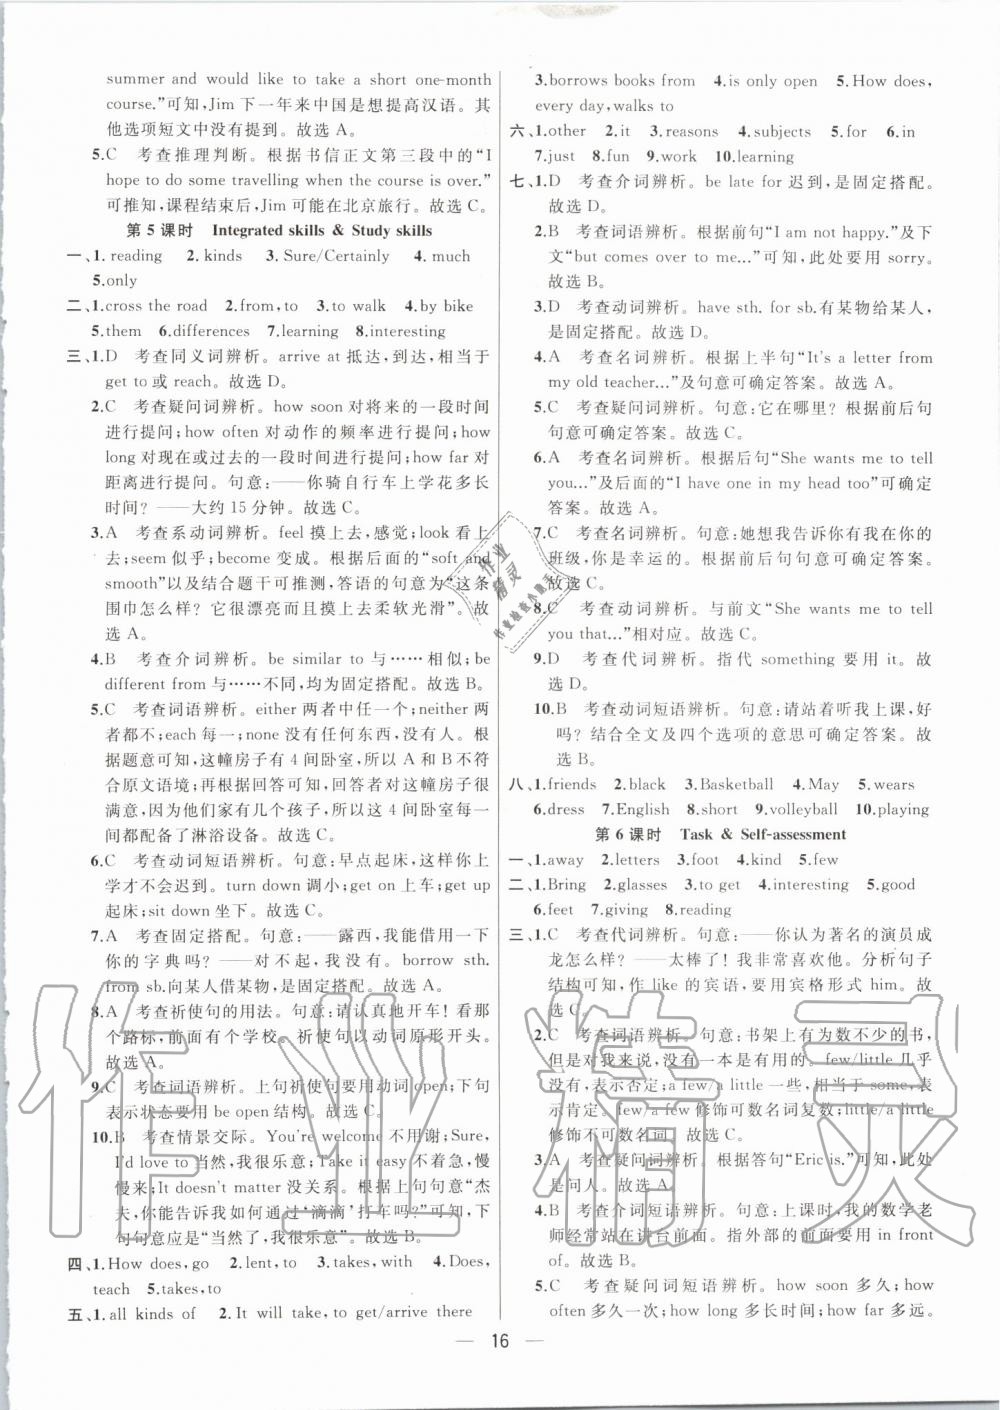 summer and would like to take a short one-month
course.”可知,Jim下一年来中国是想提高汉语。其
他选项短文中没有提到。故选A。
5.C 考查推理判断。根据书信正文第三段中的“I
hope to do some travelling when the course is over.”
可推知,课程结束后,Jim可能在北京旅行。故选C。
第5课时 Integrated skills & Study skills
一、1. reading 2. kinds 3. Sure/Certainly 4. much
5.only
二、1.cross the road 2.from,to 3.to walk 4.by bike
5.them 6.differences 7.learning 8.interesting
三、1.D 考查同义词辨析。arrive at抵达,到达,相当于
get to或reach。故选D。
2.C 考查疑问词辨析。how soon对将来的一段时间
进行提问;how often对动作的频率进行提问;how
long对现在或过去的一段时间进行提问;how far对
距离进行提问。句意:——你骑自行车上学花多长
时间?——大约15分钟。故选C。
3.A 考查系动词辨析。feel摸上去,感觉;look看上
去;seem似乎;become变成。根据后面的“soft and
smooth”以及结合题干可推测,答语的句意为“这条
围巾怎么样?它很漂亮而且摸上去柔软光滑”。故
选A。
4.B 考查介词辨析。be similar to与……相似;be
different from与……不同,均为固定搭配。故选B。
5.C 考查词语辨析。either两者中任一个;neither两
者都不;each每一;none没有任何人或任何事物。
根据题意可知,这幢房子有4间卧室,所以A和B不符
合原文语境;再根据回答可知,因为对这幢房子很
满意,想知道他们家有几个孩子,所以这4间卧室每一
间都配备了淋浴设备。故选C。
6.C 考查动词短语辨析。句意:早点起床,这样你上
学才不会迟到。turn down调小;get on上车;get up
起床;sit down坐下。故选C。
7.A 考查固定搭配。句意:——露西,我能借用一下
你的字典吗?——对不起,我没有。borrow sth.
from sb.向某人借某物,是固定搭配。故选A。
8.A 考查祈使句的用法。句意:请认真地开车!看那
个路标,前面有个学校。祈使句以动词原形开头。
故选A。
9.C 考查词语辨析。上句祈使句要用动词open;下句
表示状态要用be open结构。故选C。
10.B 考查情景交际。You're welcome不用谢;Sure,
I'd love to当然,我很乐意;Take it easy不着急,慢
慢来;It doesn't matter没关系。根据上句句意“杰
夫,你能告诉我如何通过‘滴滴’打车吗?”可知,下
句句意应是“当然了,我很乐意”。故选B。
四、1.How does,go 2.lent,to 3.takes,to 4.with 5.Does,
teach 5.takes,to
五、1.all kinds of 2.It will take,to get/arrive there
3.borrows books from 4.is only open 5.How does,
every day,walks to
六、1.other 2.it 3.reasons 4.subjects 5.for 6.in
7.just 8.fun 9.work 10.learning
七、1.D 考查介词辨析。be late for迟到,是固定搭配。
故选D。
2.B 考查词语辨析。根据前句“I am not happy.”及下
文“but comes over to me...”可知,此处要用sorry。
故选B。
3.D 考查动词辨析。have sth. for sb.有某物给某人,
是固定搭配。故选D。
4.A 考查名词辨析。根据上半句“It's a letter from
my old teacher...”及句意可确定答案。故选A。
5.C 考查疑问词辨析。句意:它在哪里?根据前后句
句意可确定答案。故选C。
6.A 考查名词辨析。根据后句“She wants me to tell
you...”及后面的“I have one in my head too”可确定
答案。故选A。
7.C 考查名词辨析。句意:她想我告诉你有我在你的
班级,你是幸运的。根据前后句句意可确定答案。
故选C。
8.C 考查动词辨析。与前文“She wants me to tell
you that...”相对应。故选C。
9.D 考查代词辨析。指代something要用it。故
选D。
10.B 考查动词短语辨析。句意:请站着听我上课,好
吗?结合全文及四个选项的意思可确定答案。故
选B。
八、1.friends 2.black 3.Basketball 4.May 5.wears
6.dress 7.English 8.short 9.volleyball 10.playing
第6课时 Task & Self-assessment
一、1.away 2.letters 3.foot 4.kind 5.few
二、1.Bring 2.glasses 3.to get 4.interesting 5.good
6.feet 7.giving 8.reading
三、1.C 考查代词辨析。句意:——你认为著名的演员成
龙怎么样?——太棒了!我非常喜欢他。分析句子
结构可知,作like的宾语,要用宾格形式him。故
选C。
2.C 考查词语辨析。句意:书架上有为数不少的书,
但是对我来说,没有一本是有用的。few/little几乎
没有,表示否定;a few/a little一些,相当于some,表
示肯定。few/a few修饰可数名词复数;little/a little
修饰不可数名词。故选C。
3.A 考查疑问词辨析。根据答句“Eric is.”可知,此处
是问人。故选A。
4.B 考查介词短语辨析。句意:上课时,我的数学老
师经常站在讲台前面。指外部的前面要用in front
of。故选B。
5.C 考查疑问词短语辨析。how soon多久;how
often多久一次;how long多长时间;how far多远。
16
作业精灵
作业精灵